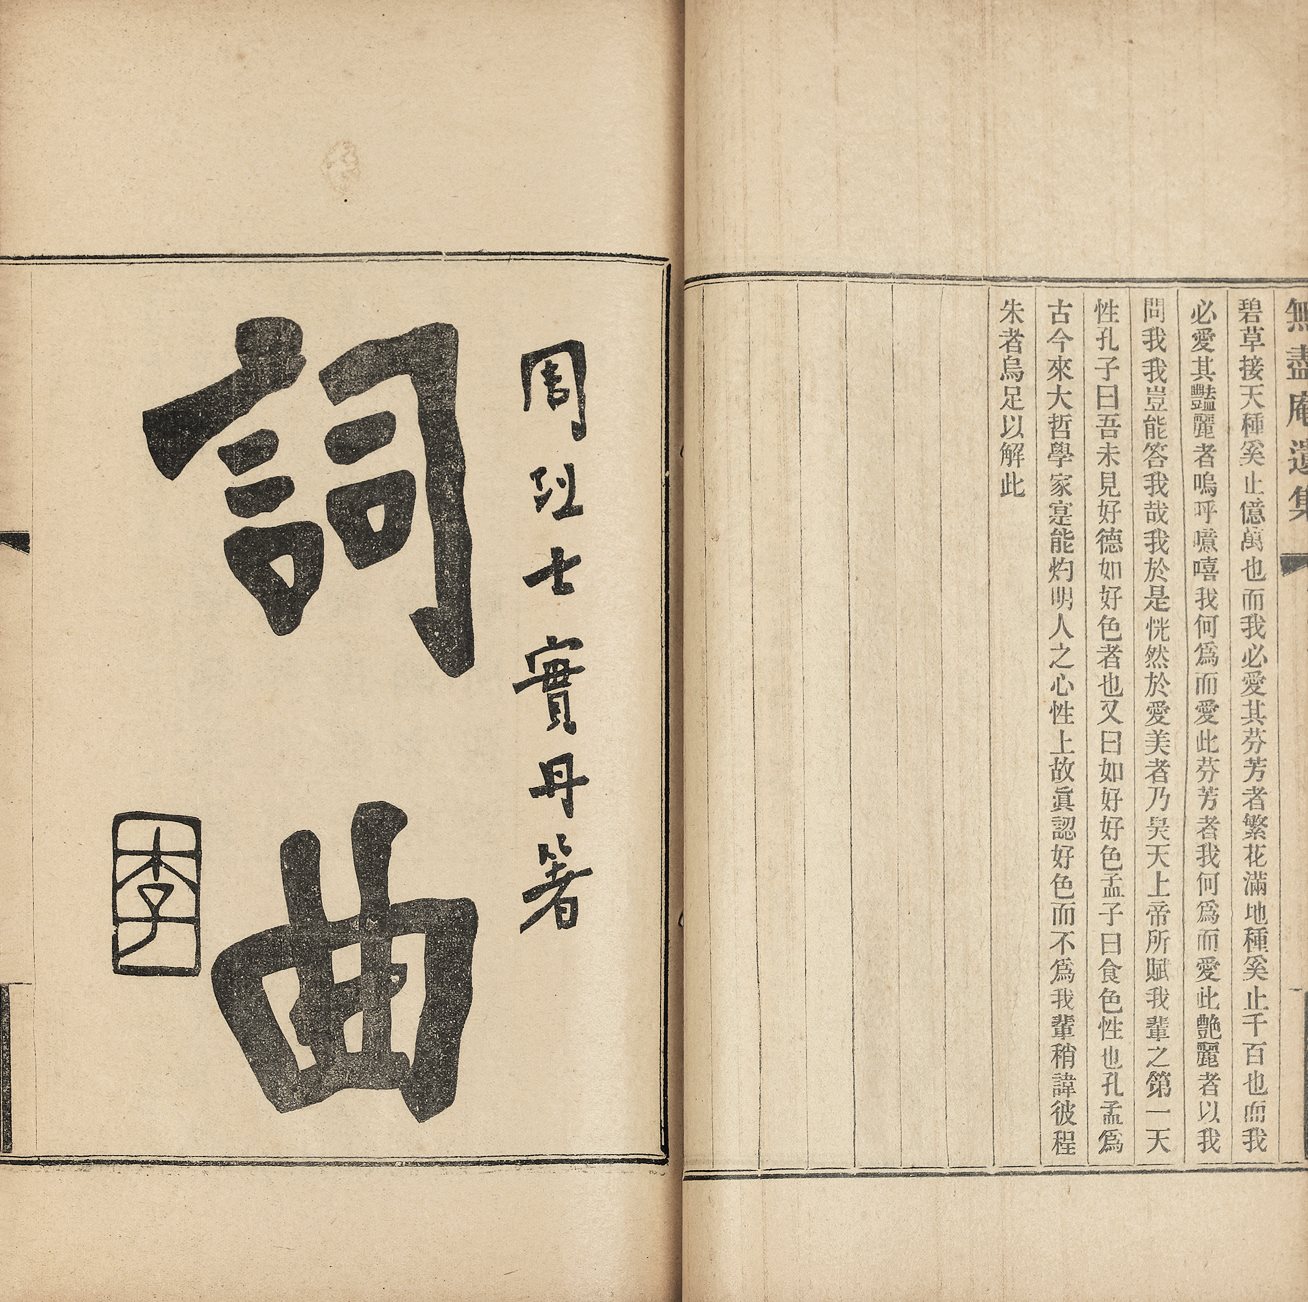 無盡庵遺集
碧草接天種奚止億萬也而我必愛其芬芳者繁花滿地種奚止千百也而我
必愛其豔麗者嗚呼噫嘻我何爲而愛此芬芳者我何爲而愛此艷麗者以我
問我我豈能答我哉我於是恍然於愛美者乃昊天上帝所賦我輩之第一天
性孔子曰吾未見好德如好色者也又曰如好好色孟子曰食色性也孔孟爲
古今來大哲學家寔能灼明人之心性上故眞認好色而不爲我輩稍諱彼程
朱者烏足以解此
周烈士實丹著
詞曲
李